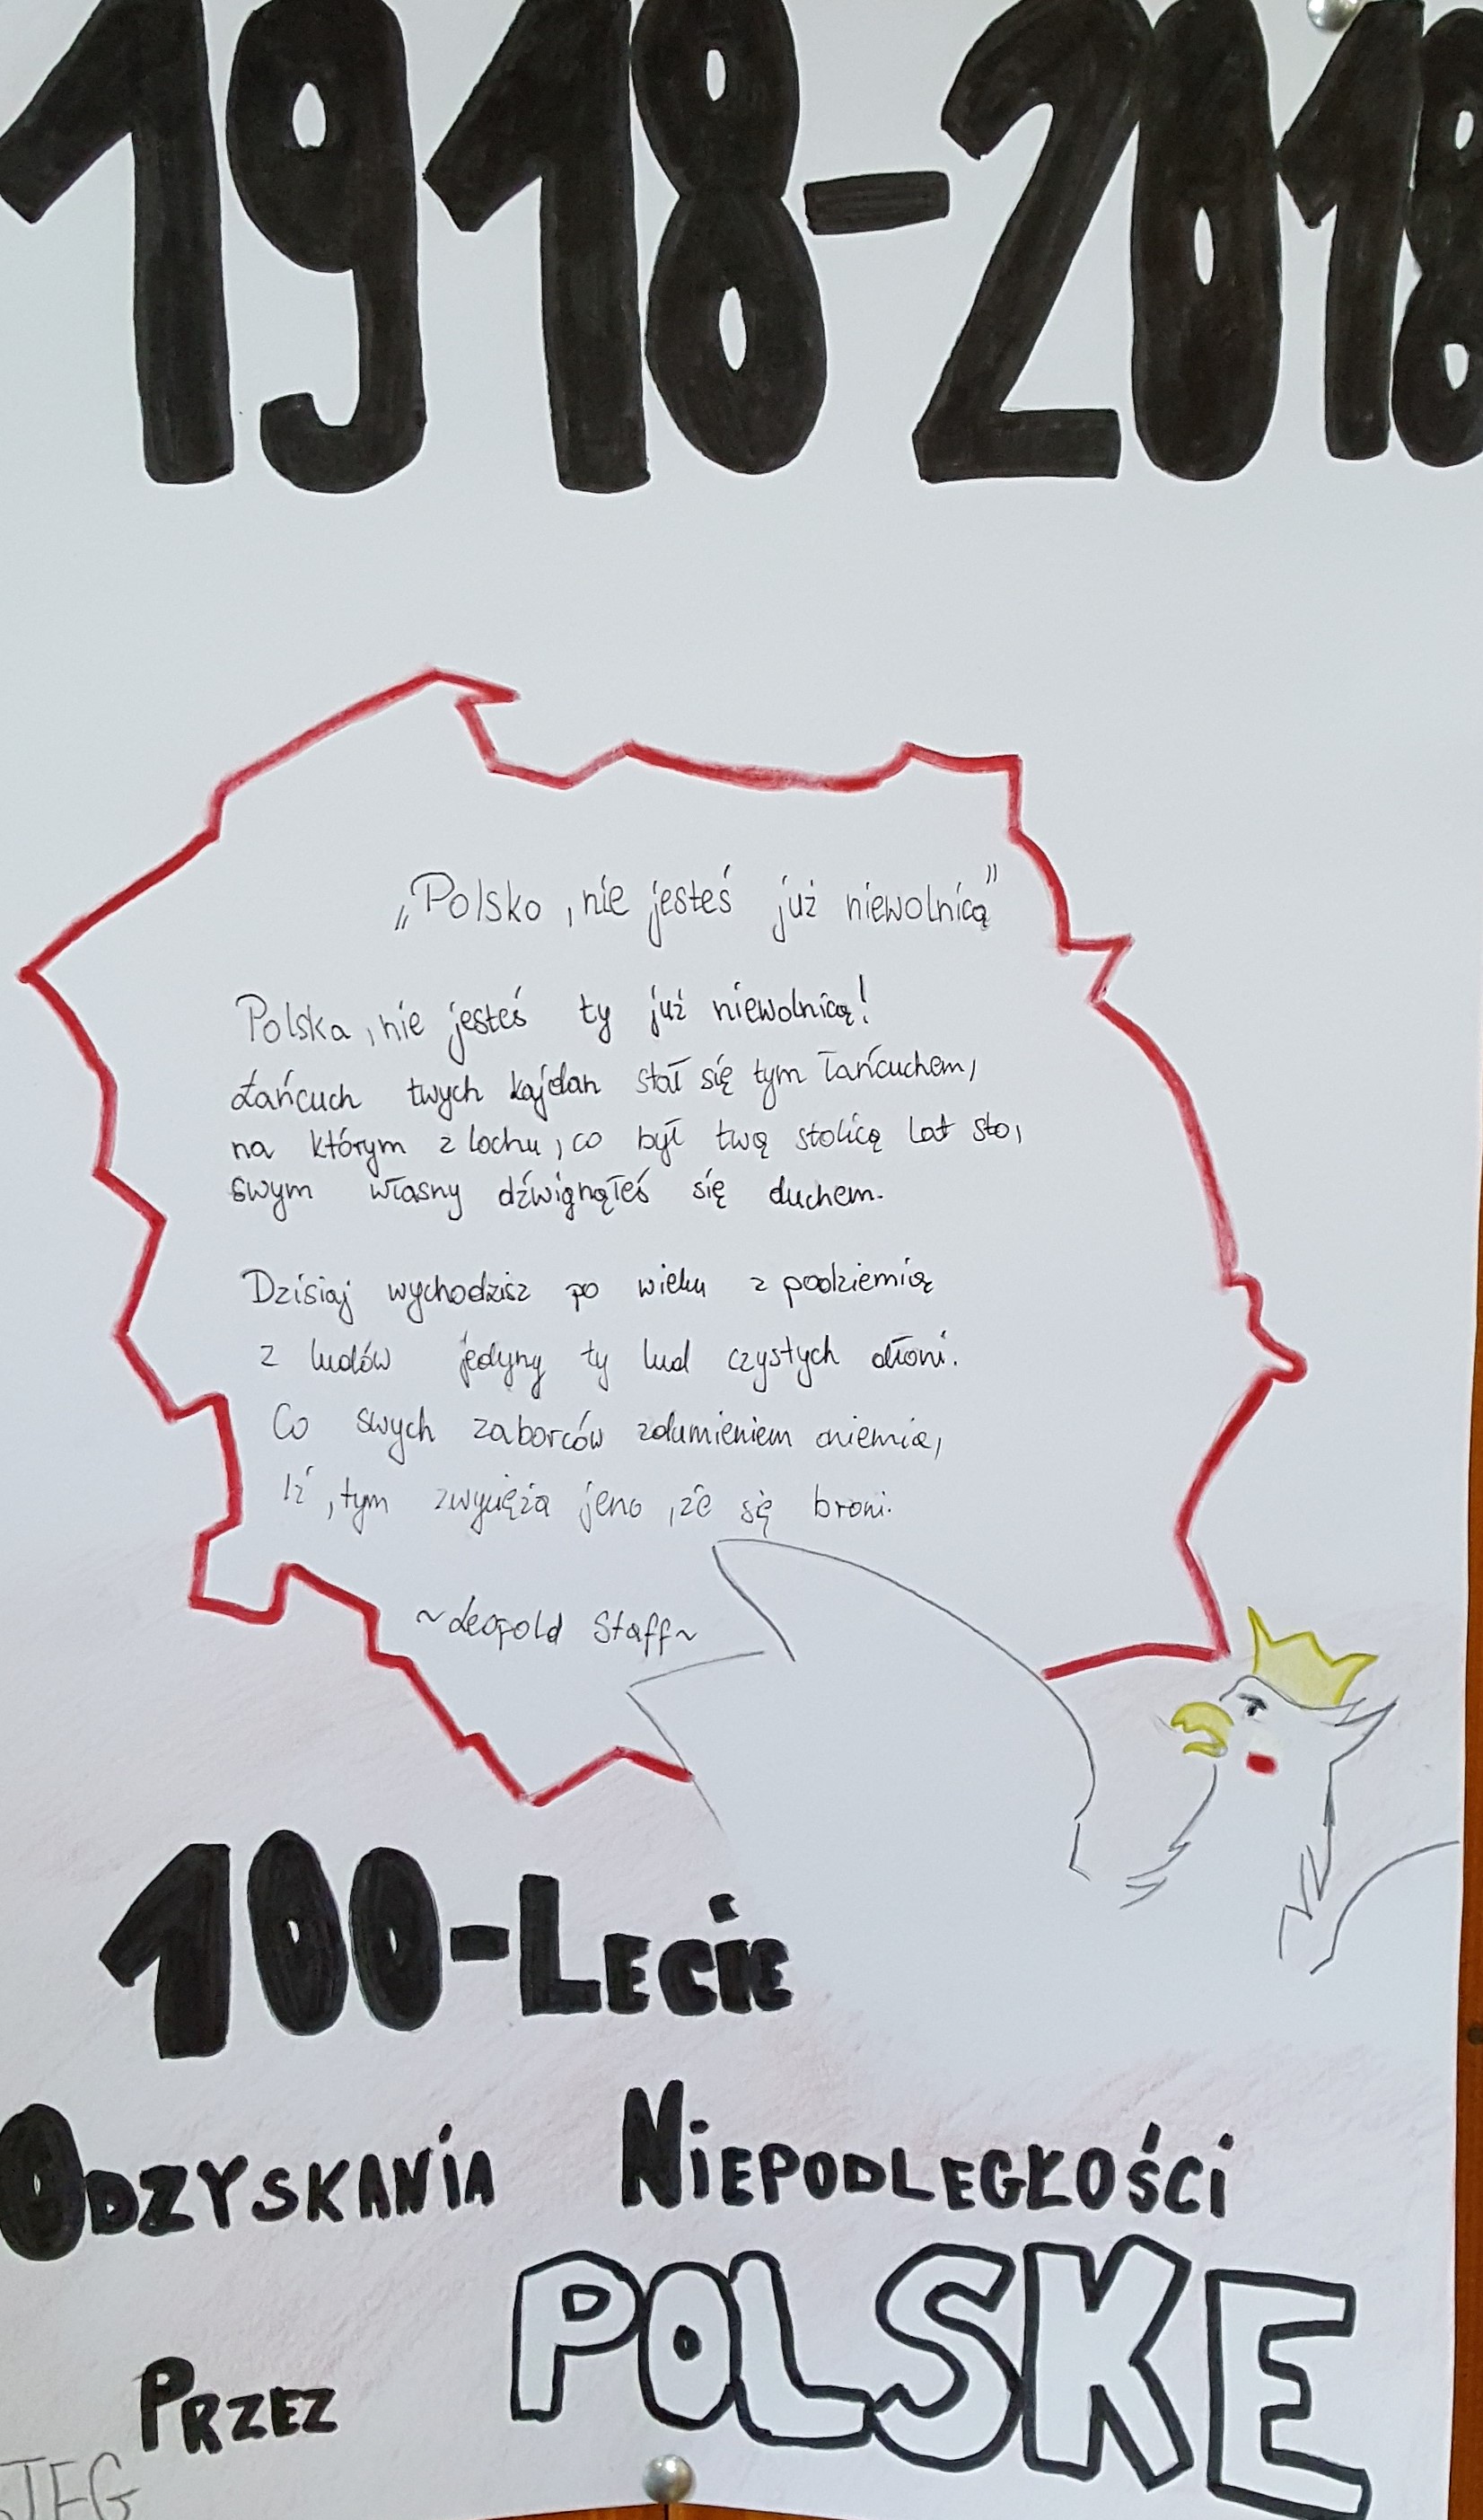 1918-2018
„Polsko, nie jesteś już niewolnicą”
Polska, nie jesteś ty już niewolnicą!
Łańcuch twych kajdan stał się tym łańcuchem,
na którym z lochu, co był twą stolicą lat sto,
swym własny dźwignąłeś się duchem.
Dzisiaj wychodzisz po wieku z podziemią
z ludów jedyny ty lud czystych dłoni.
Co swych zaborców zdumieniem oniemia,
Iż, tym zwycięża jeno, że się broni.
~Leopold Staff~
100-LECIE
ODZYSKANIA NIEPODLEGŁOŚCI
PRZEZ POLSKE